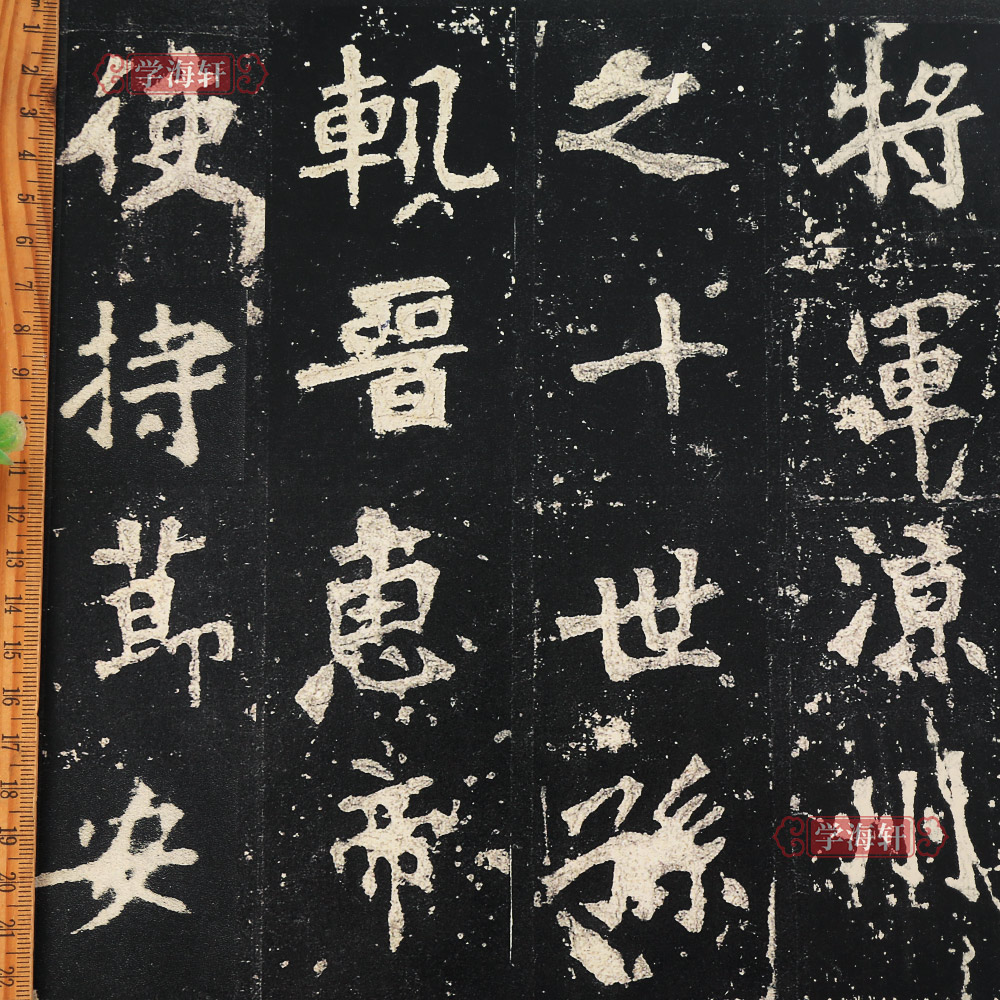 将軍涼州
之十世孫
軌晉惠帝
使持節安
学海轩
学海轩
1 2 3 4 5 6 7 8 9 11 12 13 14 15 16 17 18 19 20 21 22